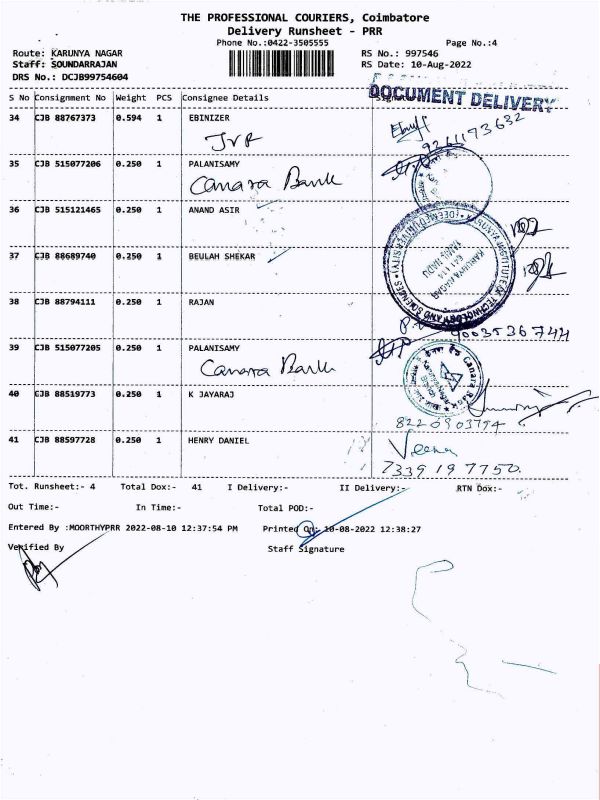 THE PROFESSIONAL COURIERS, Coimbatore
Delivery Runsheet - PRR
Phone No.:0422-3505555 Page No.:4
Route: KARUNYA NAGAR RS No.: 997546
Staff: SOUNDARRAJAN RS Date: 10-Aug-2022
DRS No.: DCJB99754604
DOCUMENT DELIVERY
S No Consignment No Weight PCS Consignee Details
34 CJB 88767373 0.594 1 EBINIZER
9361173632
35 CJB 515077206 0.250 1 PALANISAMY
Canara Bank
36 CJB 515121465 0.250 1 ANAND ASIR
KARUNYA INSTITUTE OF TECHNOLOGY AND SCIENCES (DEEMED UNIVERSITY)
KARUNYA NAGAR
641 114
TAMIL NADU
37 CJB 88689740 0.250 1 BEULAH SHEKAR
38 CJB 88794111 0.250 1 RAJAN
9003536744
39 CJB 515077205 0.250 1 PALANISAMY
Canara Bank
Canara Bank
40 CJB 88519773 0.250 1 K JAYARAJ
8220903794
41 CJB 88597728 0.250 1 HENRY DANIEL
Veena
7339197750.
Tot. Runsheet:- 4 Total Dox:- 41 I Delivery:- II Delivery:- RTN Dox:-
Out Time:- In Time:- Total POD:-
Entered By :MOORTHYPRR 2022-08-10 12:37:54 PM Printed On: 10-08-2022 12:38:27
Verified By Staff Signature